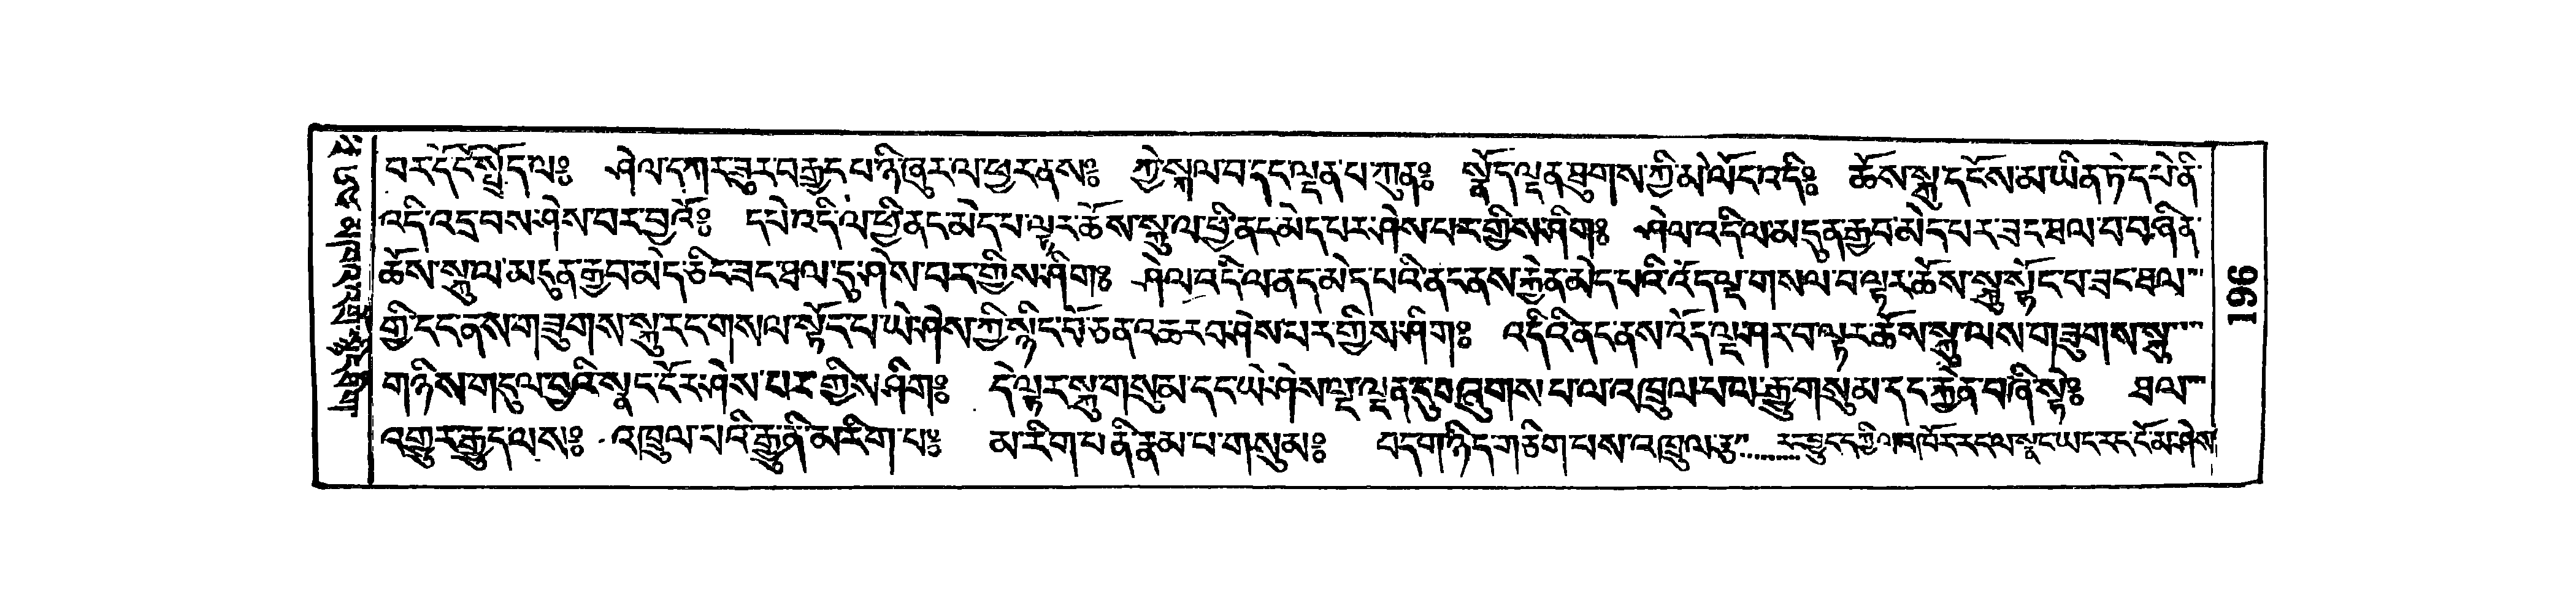 བར་དེ་ངོ་སྤྲོད་ལ༔ ཤེལ་དཀར་ཟུར་བརྒྱད་པ་ཉི་ཟེར་ལ་ཕྱར་ནས༔ ཀྱེ་སྐལ་བ་དང་ལྡན་པ་ཀུན༔ སྣོད་ལྡན་ཐུགས་ཀྱི་མེ་ལོང་འདི༔ ཆོས་སྐུ་དངོས་མ་ཡིན་ཏེ་དཔེ་ནི་
འདི་འདྲ་བས་ཤེས་པར་བྱའོ༔ དཔེ་འདི་ལ་ཕྱི་ནང་མེད་པ་ལྟར་ཆོས་སྐུ་ལ་ཕྱི་ནང་མེད་པར་ཤེས་པར་གྱིས་ཤིག༔ ཤེལ་འདི་ལ་མདུན་རྒྱབ་མེད་པར་ཟང་ཐལ་བ་བཞིན་
ཆོས་སྐུ་ལ་མདུན་རྒྱབ་མེད་ཅིང་ཟང་ཐལ་དུ་ཤེས་པར་གྱིས་ཤིག༔ ཤེལ་འདི་ལ་ནད་མེད་པའི་ནང་ནས་རྐྱེན་མེད་པའི་འོད་ལྔ་གསལ་བ་ལྟར་ཆོས་སྐུ་སྟོང་པ་ཟང་ཐལ་
གྱི་ངང་ནས་གཟུགས་སྐུ་རང་གསལ་སྟོང་པ་ཡེ་ཤེས་ཀྱི་སྙིང་པོ་ཅན་འཆར་བ་ཤེས་པར་གྱིས་ཤིག༔ འདིའི་ནང་ནས་འོད་ལྔ་ཤར་བ་ལྟར་ཆོས་སྐུ་ལས་གཟུགས་སྐུ་
གཉིས་གདུལ་བྱའི་སྣང་ངོར་ཤེས་པར་གྱིས་ཤིག༔ དེ་ལྟར་སྐུ་གསུམ་དང་ཡེ་ཤེས་ལྔ་ལྡན་དུ་བཞུགས་པ་ལ་འཁྲུལ་པ་ལ་རྒྱུ་གསུམ་དང་རྐྱེན་བཞི་སྟེ༔ ཐལ་
འགྱུར་རྒྱུད་ལས༔ འཁྲུལ་པའི་རྒྱུ་ནི་མ་རིག་པ༔ མ་རིག་པ་ནི་རྣམ་པ་གསུམ༔ བདག་ཉིད་གཅིག་པས་འཁྲུལ་ རང་བྱུང་ ལ་སྣང་ཡང་རང་ངོ་མ་ཤེས